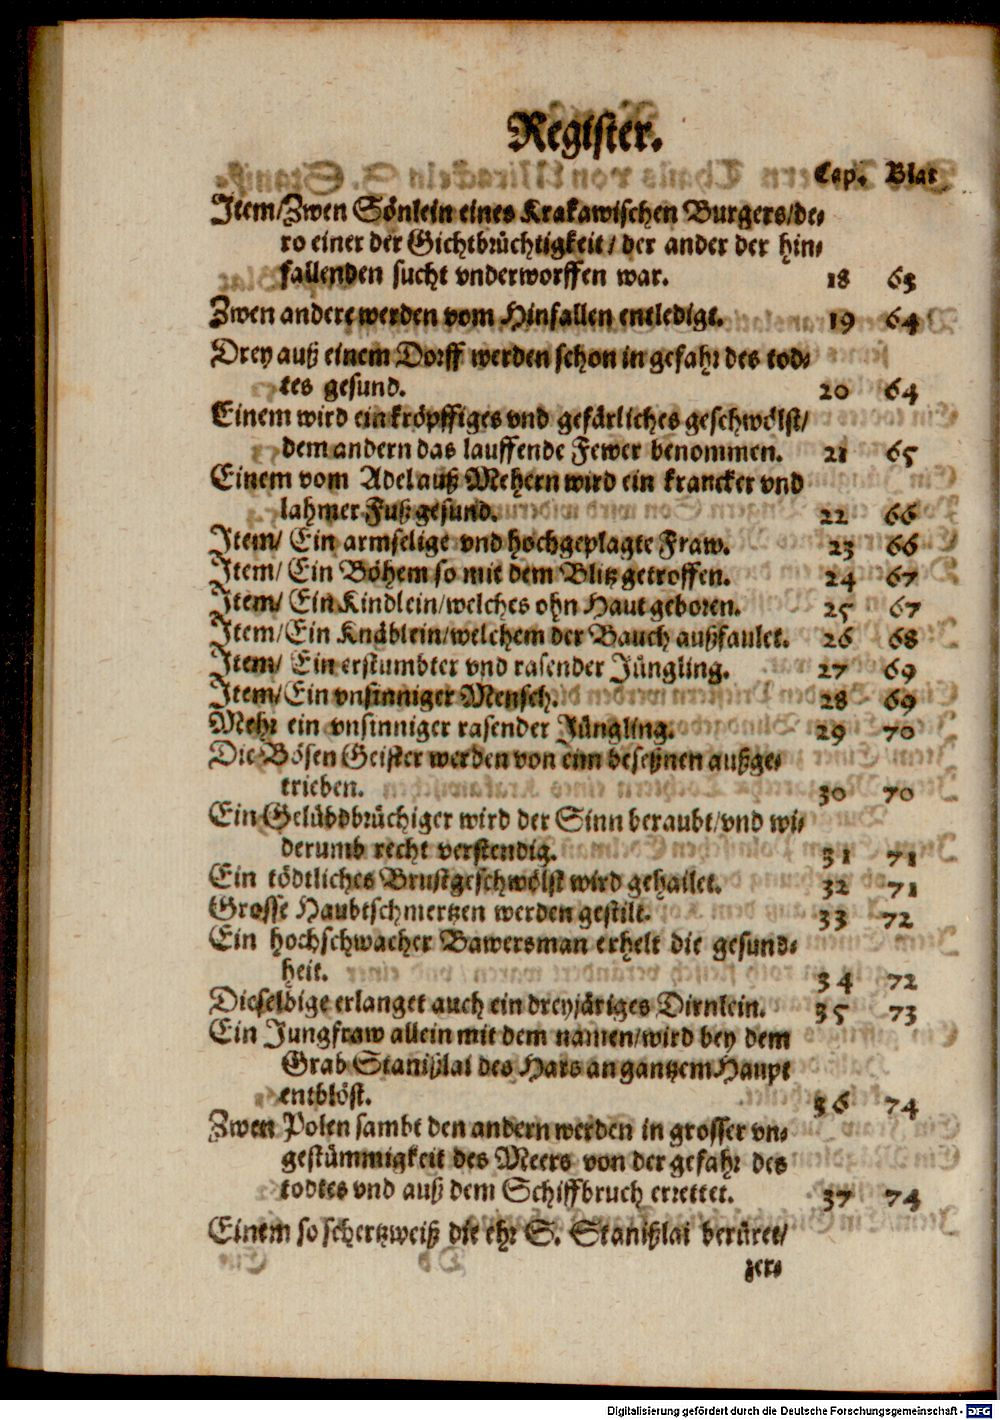 Register.
Cap. Blat
Item/Zwen Sönlein eines Krakawischen Burgers/de⸗
ro einer der Gichtbrüchtigkeit/ der ander der hin⸗
fallenden sucht vnderworffen war. 18 63
Zwen andere werden vom Hinfallen entledigt. 19 64
Drey auß einem Dorff werden schon in gefahr des tod⸗
tes gesund. 20 64
Einem wird ein kröpffiges vnd gefärliches geschwölst/
dem andern das lauffende Fewer benommen. 21 65
Einem vom Adel auß Mehern wird ein krancker vnd
lahmer Fuß gesund. 22 66
Item/ Ein armselige vnd hochgeplagte Fraw. 23 66
Item/ Ein Böhem so mit dem Blitz getroffen. 24 67
Item/ Ein Kindlein/welches ohn Haut geboren. 25 67
Item/Ein Knäblein/welchem der Bauch außfaulet. 26 68
Item/ Ein erstumbter vnd rasender Jüngling. 27 69
Item/Ein vnsinniger Mensch. 28 69
Mehr ein vnsinniger rasender Jüngling. 29 70
Die Bösen Geister werden von eim besetznen außge⸗
trieben. 30 70
Ein Gelübdbrüchiger wird der Sinn beraubt/vnd wi⸗
derumb recht verstendig. 31 71
Ein tödtliches Brustgeschwölst wird gehailet. 32 71
Grosse Haubtschmertzen werden gestilt. 33 72
Ein hochschwacher Bawersman erhelt die gesund⸗
heit. 34 72
Dieselbige erlanget auch ein dreyjäriges Dirnlein. 35 73
Ein Jungfraw allein mit dem namen/wird bey dem
Grab Stanißlai des Hars an gantzem Haupt
entblöst. 36 74
Zwen Polen sambt den andern werden in grosser vn⸗
gestümmigkeit des Meers von der gefahr des
todtes vnd auß dem Schiffbruch errettet. 37 74
Einem so schertzweiß die ehr S. Stanißlai berüret/
zer⸗
Digitalisierung gefördert durch die Deutsche Forschungsgemeinschaft - DFG